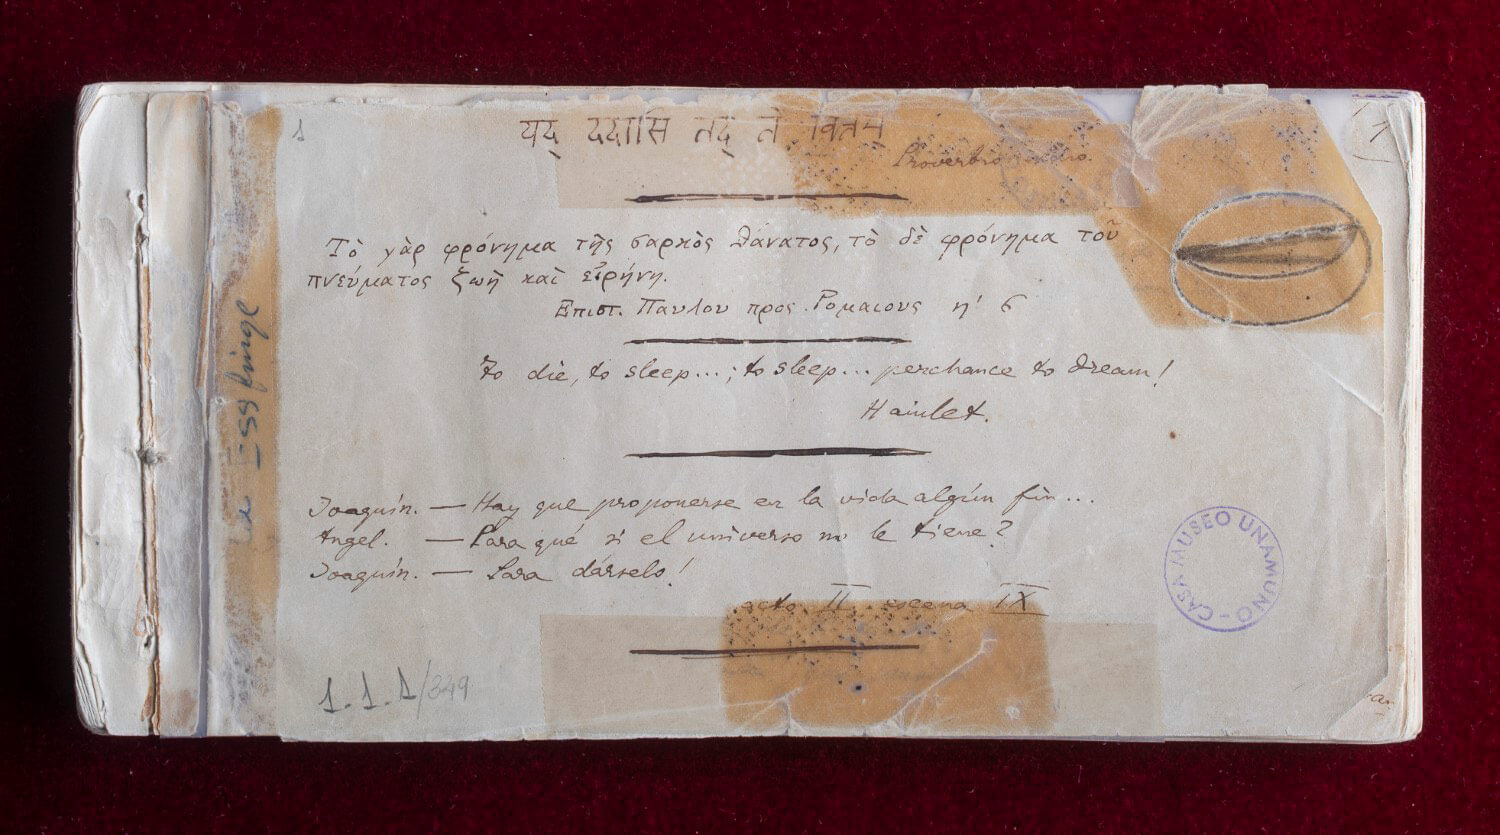 1
यद् ददासि तद् ते वित्तम्
Proverbio indio.
Τὸ γὰρ φρόνημα τῆς σαρκὸς θάνατος, τὸ δὲ φρόνημα τοῦ
πνεύματος ζωὴ καὶ εἰρήνη.
Επιστ. Παυλου προς Ρομαιους η' 6
To die, to sleep...; to sleep... perchance to dream!
Hamlet.
Joaquín. — Hay que proponerse en la vida algún fin...
Angel. — Para qué si el universo no le tiene?
Joaquín. — Para dárselo!
acto II escena IX
1.1.1/349
La Esfinge
CASA MUSEO UNAMUNO